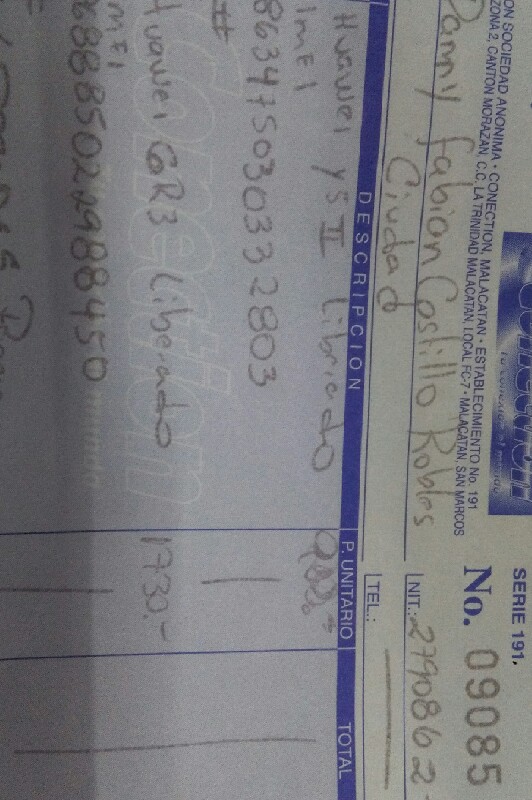 Conection
tu conexión al mundo
ON SOCIEDAD ANONIMA • CONECTION, MALACATAN • ESTABLECIMIENTO No. 191
ZONA 2, CANTON MORAZAN, C.C. LA TRINIDAD MALACATAN, LOCAL FC-7 • MALACATAN, SAN MARCOS
SERIE 191,
No. 09085
Danny Fabian Castillo Robles
NIT.: 2790862
Ciudad
TEL.:
DESCRIPCION P. UNITARIO TOTAL
Huawei Y5 II Libriado
IMEI
863475030332803
#
Huawei GR3 Liberado 1730.-
IMEI
86885022988450